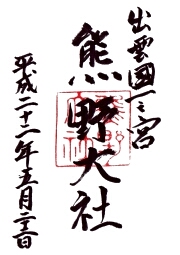 出雲國一之宮
熊野大社
平成二十一年五月二十三日